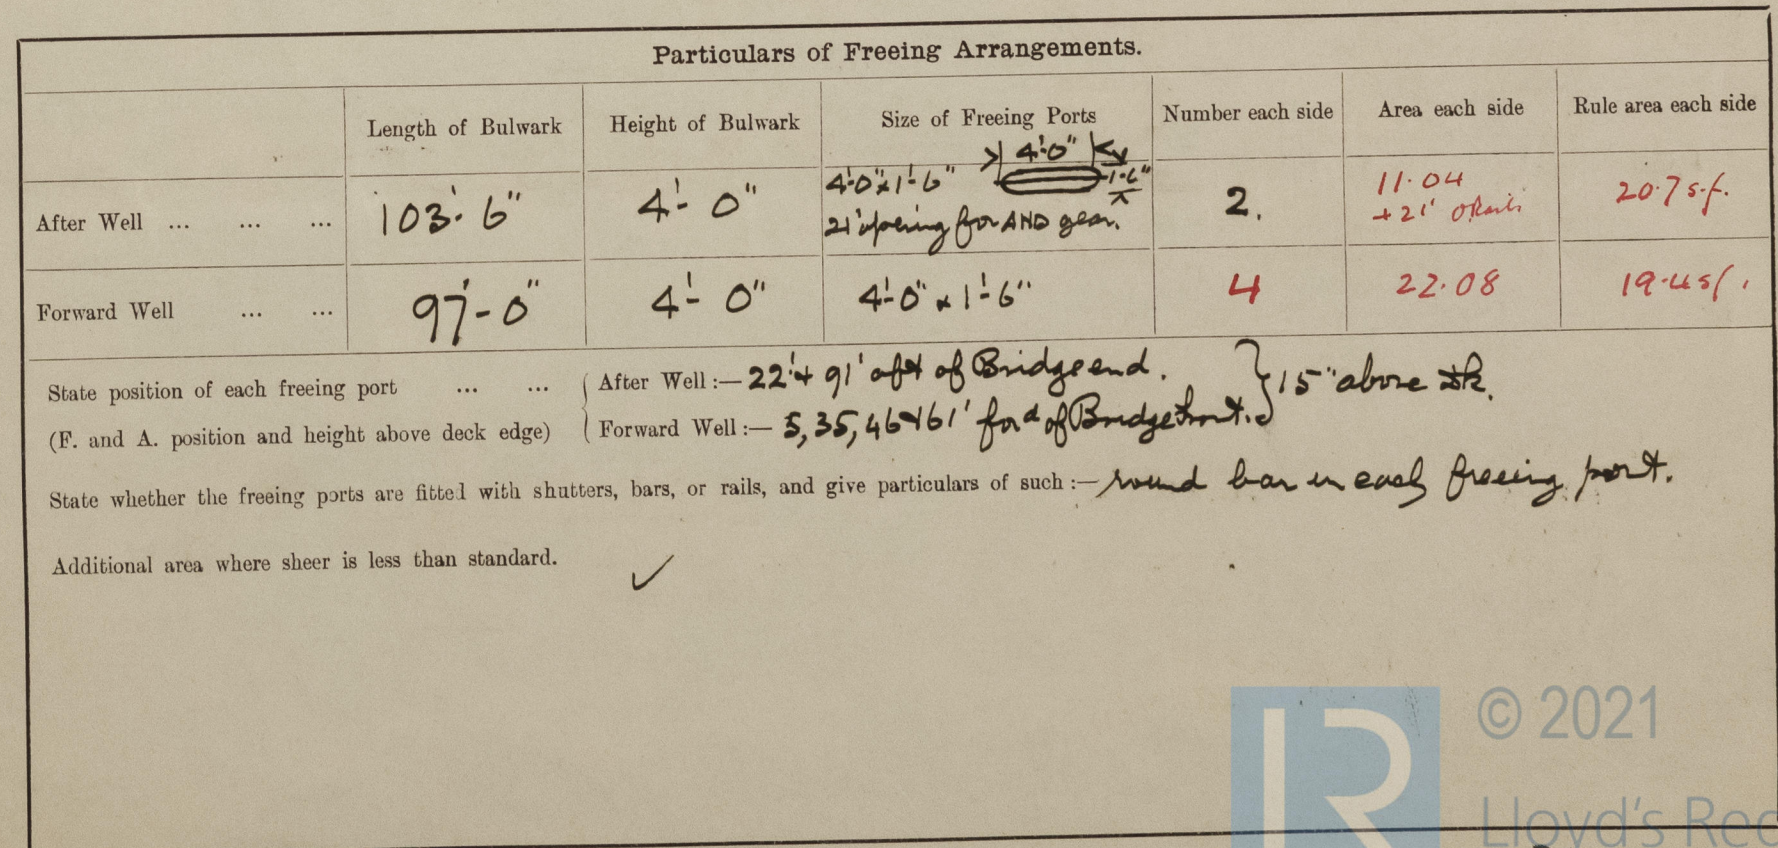 Particulars of Freeing Arrangements.
Length of Bulwark Height of Bulwark Size of Freeing Ports Number each side Area each side Rule area each side
4'-0"
After Well ... ... ... 103'-6" 4'-0" 4'-0" x 1'-6" 1'-6" 2. 11.04 20.7 s.f.
21' opening for AND gear. + 21' ORails
Forward Well ... ... 97'-0" 4'-0" 4'-0" x 1'-6" 4 22.08 19.4 s/.
State position of each freeing port ... ... After Well :— 22' + 91' aft of Bridge end. 15" above Dk.
(F. and A. position and height above deck edge) Forward Well :— 5, 35, 46 + 61' ford of Bridge front.
State whether the freeing ports are fitted with shutters, bars, or rails, and give particulars of such :— round bar in each freeing port.
Additional area where sheer is less than standard. ✓
© 2021
LR
Lloyd's Reg